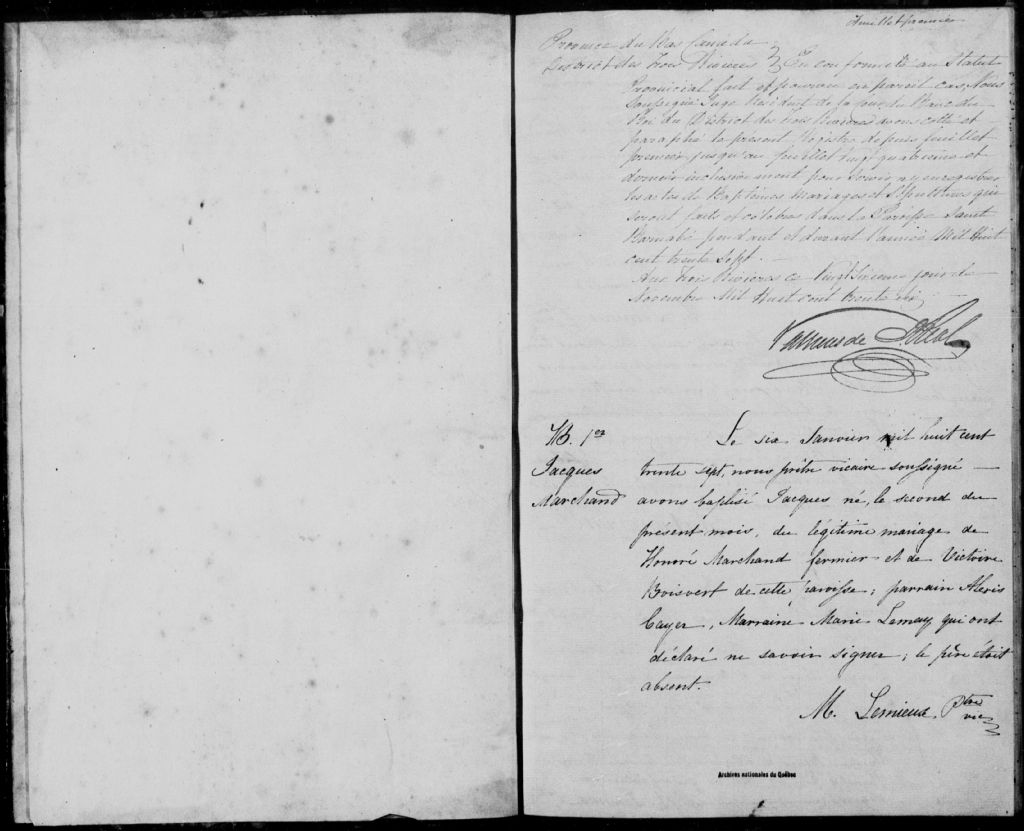 feuillet premier
Province du Bas Canada
District des Trois Rivieres } En conformité au Statut
Provincial fait et pourvu en pareil cas, Nous
Soussigné Juge Résident de la Cour du Banc du
Roi du District des Trois Rivieres avons cotté et
paraphé le présent Registre depuis feuillet
premier jusqu'au feuillet vingt quatrieme et
dernier inclusivement pour servir à y enregistrer
les actes de Baptêmes Mariages et Sépultures qui
seront faits et célébrés dans la Paroisse Saint
Barnabé pendant et durant l'année Mil Huit
cent trente Sept.
Aux Trois Rivieres ce Vingt Sixieme jour de
Novembre Mil Huit cent trente six
Vallieres de St Real
B. 1er
Jacques
Marchand
Le six Janvier mil huit cent
trente sept, nous prêtre vicaire soussigné
avons baptisé Jacques né, le second du
présent mois, du légitime mariage de
Honoré Marchand fermier et de Victoire
Boisvert de cette paroisse; parrain Alexis
Cayer, Marraine Marie Lemay, qui ont
déclaré ne savoir signer; le père étoit
absent.
M. Lemieux, Ptre
vic
Archives nationales du Québec